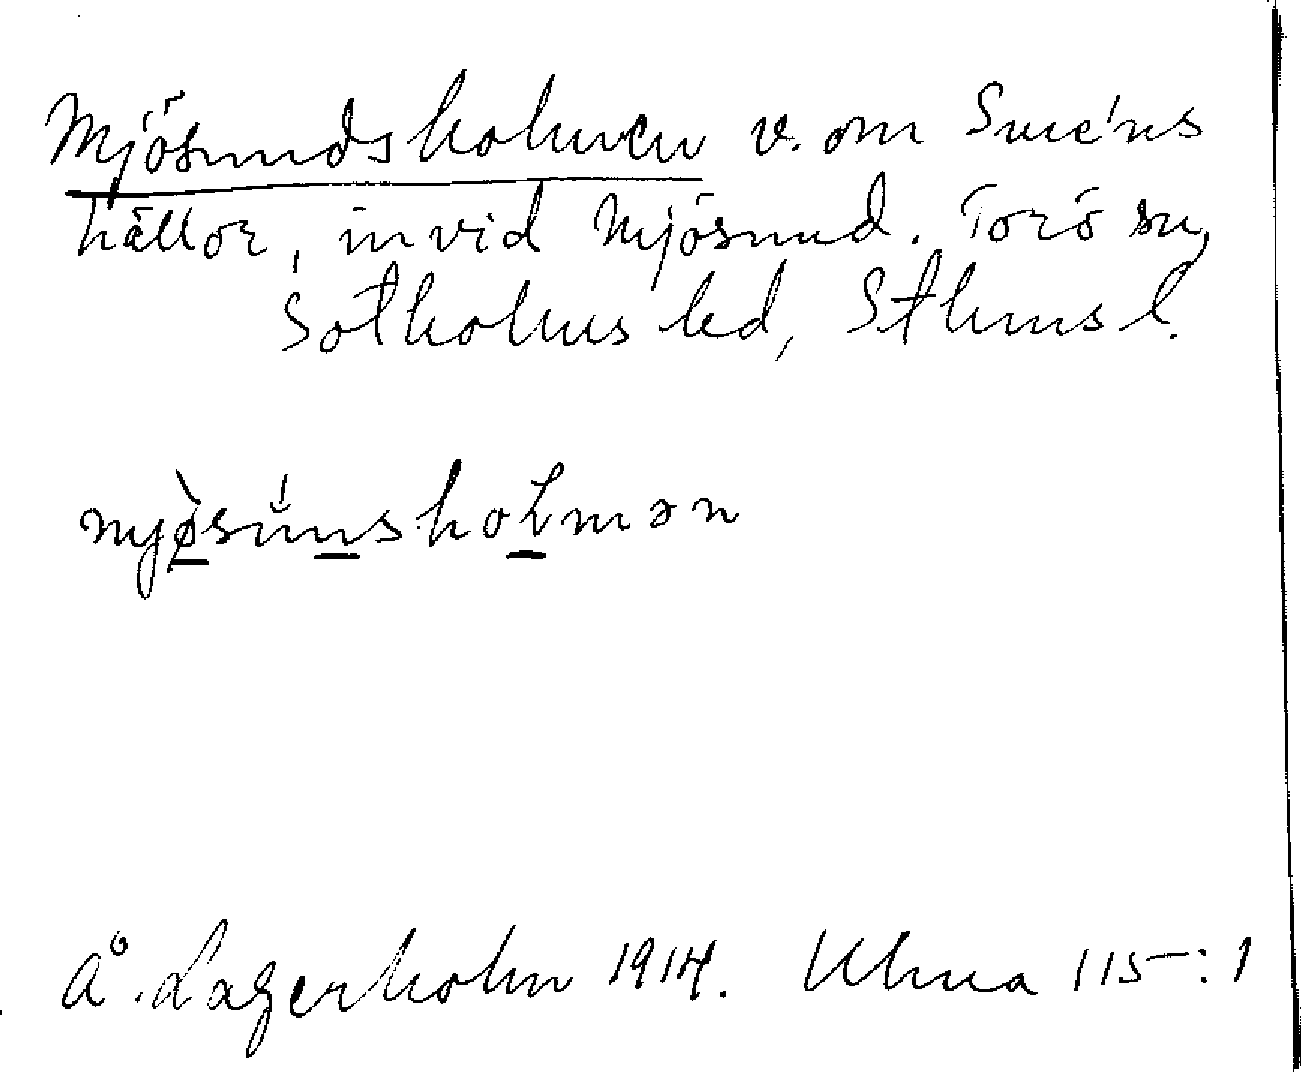 Mjösundsholmen v. om Smeʹns
hällor, invid Mjösund. Torö sn,
Sotholms hd, Sthms l.
mjø̀sùnsholmən
Å. Lagerholm 1914. Ulma 115:1